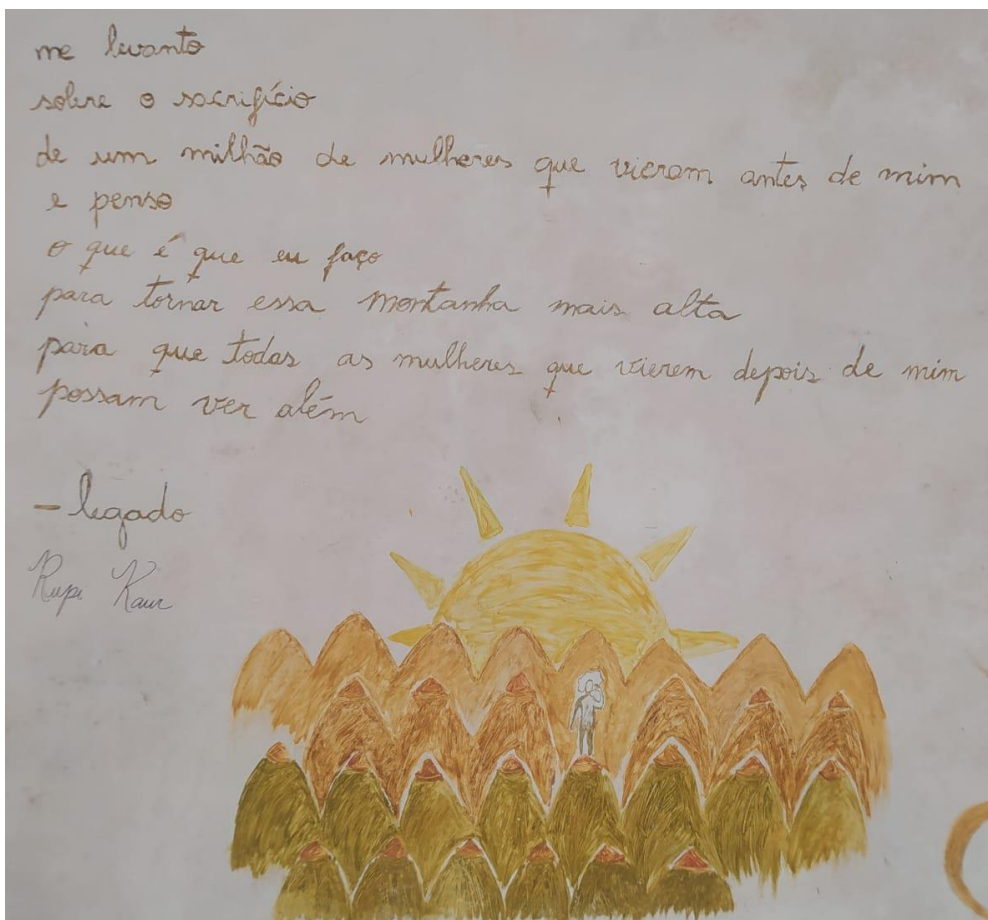 me levanto
sobre o sacrifício
de um milhão de mulheres que vieram antes de mim
e penso
o que é que eu faço
para tornar essa montanha mais alta
para que todas as mulheres que vierem depois de mim
possam ver além
- legado
Rupi Kaur